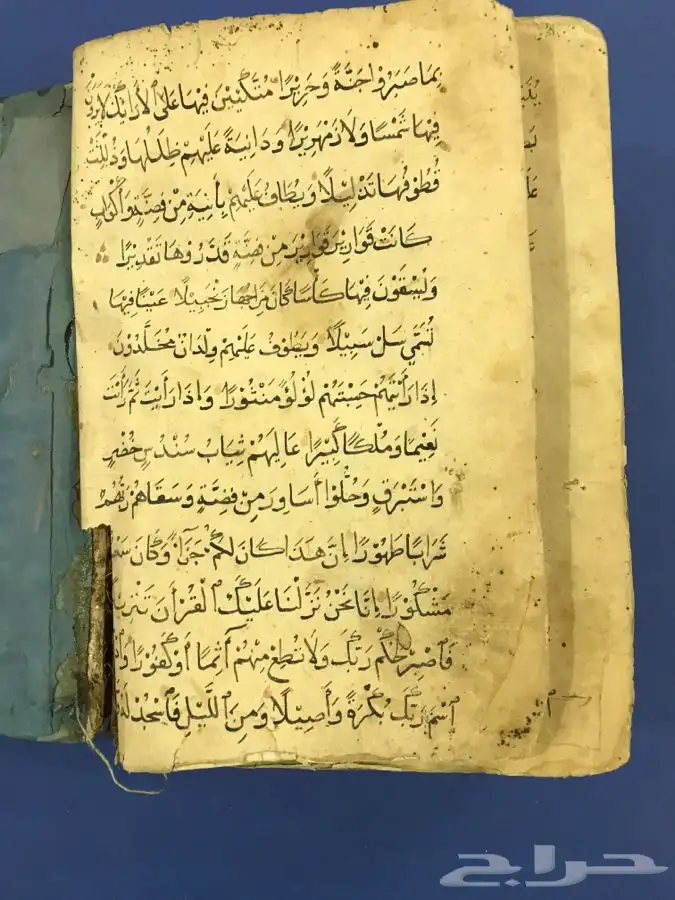 بِمَا صَبَرُوا جَنَّةً وَحَرِيرًا مُتَّكِئِينَ فِيهَا عَلَى الْأَرَائِكِ لَا يَرَوْنَ
فِيهَا شَمْسًا وَلَا زَمْهَرِيرًا وَدَانِيَةً عَلَيْهِمْ ظِلَالُهَا وَذُلِّلَتْ
قُطُوفُهَا تَذْلِيلًا وَيُطَافُ عَلَيْهِمْ بِآنِيَةٍ مِنْ فِضَّةٍ وَأَكْوَابٍ
كَانَتْ قَوَارِيرَ قَوَارِيرَ مِنْ فِضَّةٍ قَدَّرُوهَا تَقْدِيرًا
وَيُسْقَوْنَ فِيهَا كَأْسًا كَانَ مِزَاجُهَا زَنْجَبِيلًا عَيْنًا فِيهَا
تُسَمَّى سَلْسَبِيلًا وَيَطُوفُ عَلَيْهِمْ وِلْدَانٌ مُخَلَّدُونَ
إِذَا رَأَيْتَهُمْ حَسِبْتَهُمْ لُؤْلُؤًا مَنْثُورًا وَإِذَا رَأَيْتَ ثَمَّ رَأَيْتَ
نَعِيمًا وَمُلْكًا كَبِيرًا عَالِيَهُمْ ثِيَابُ سُنْدُسٍ خُضْرٍ
وَاسْتَبْرَقٍ وَحُلُّوا أَسَاوِرَ مِنْ فِضَّةٍ وَسَقَاهُمْ رَبُّهُمْ
شَرَابًا طَهُورًا إِنَّ هَذَا كَانَ لَكُمْ جَزَآءً وَكَانَ
مَشْكُورًا إِنَّا نَحْنُ نَزَّلْنَا عَلَيْكَ الْقُرْآنَ
فَاصْبِرْ لِحُكْمِ رَبِّكَ وَلَا تُطِعْ مِنْهُمْ آثِمًا أَوْ كَفُورًا
اسْمَ رَبِّكَ بُكْرَةً وَأَصِيلًا وَمِنَ اللَّيْلِ فَاسْجُدْ لَهُ
حراج